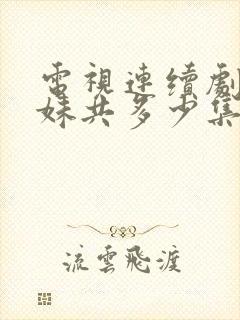 電視連續劇
妹共多少集
流雲飛渡